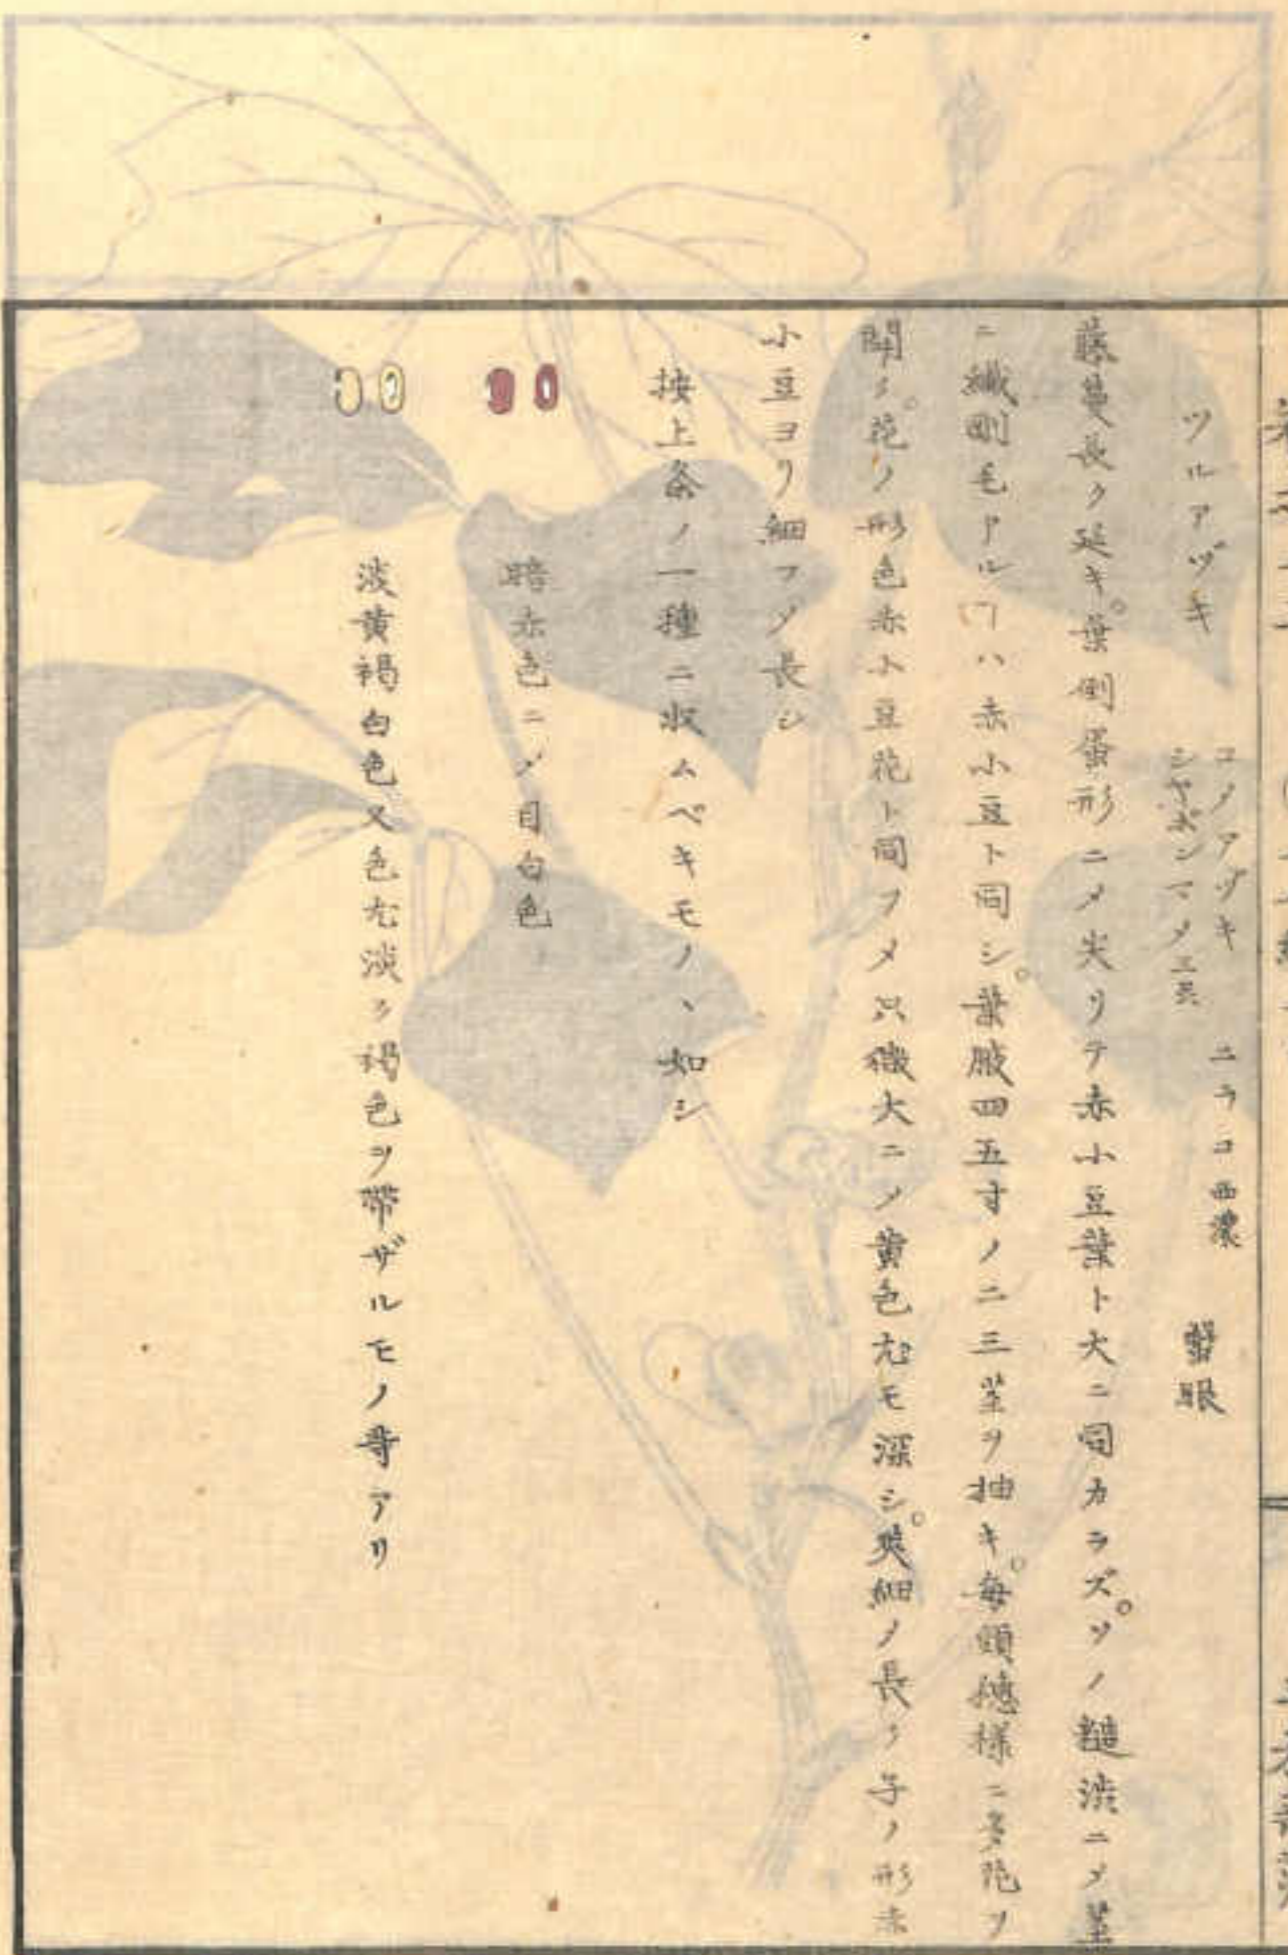 ツルアヅキ コメアヅキ ニラコ西濃 蟹眼
シヤボンマメ 三县
藤蔓長ク延キ。葉倒蛋形ニメ尖リテ赤小豆葉ト大ニ同カラズ。ソノ糙渋ニメ茎
ニ纎剛毛アルヿハ赤小豆ト同シ。葉腋四五寸ノ二三茎ヲ抽キ。毎頭穗様ニ多花ヲ
開ク。花ノ形色赤小豆花ト同フメ只微大ニメ黄色尤モ深シ。莢細ク長ク子ノ形赤
小豆ヨリ細フメ長シ
按上条ノ一種ニ収ムベキモノヽ如シ
暗赤色ニメ目白色
淡黄褐白色又色尤淡ク褐色ヲ帯ザルモノ等アリ